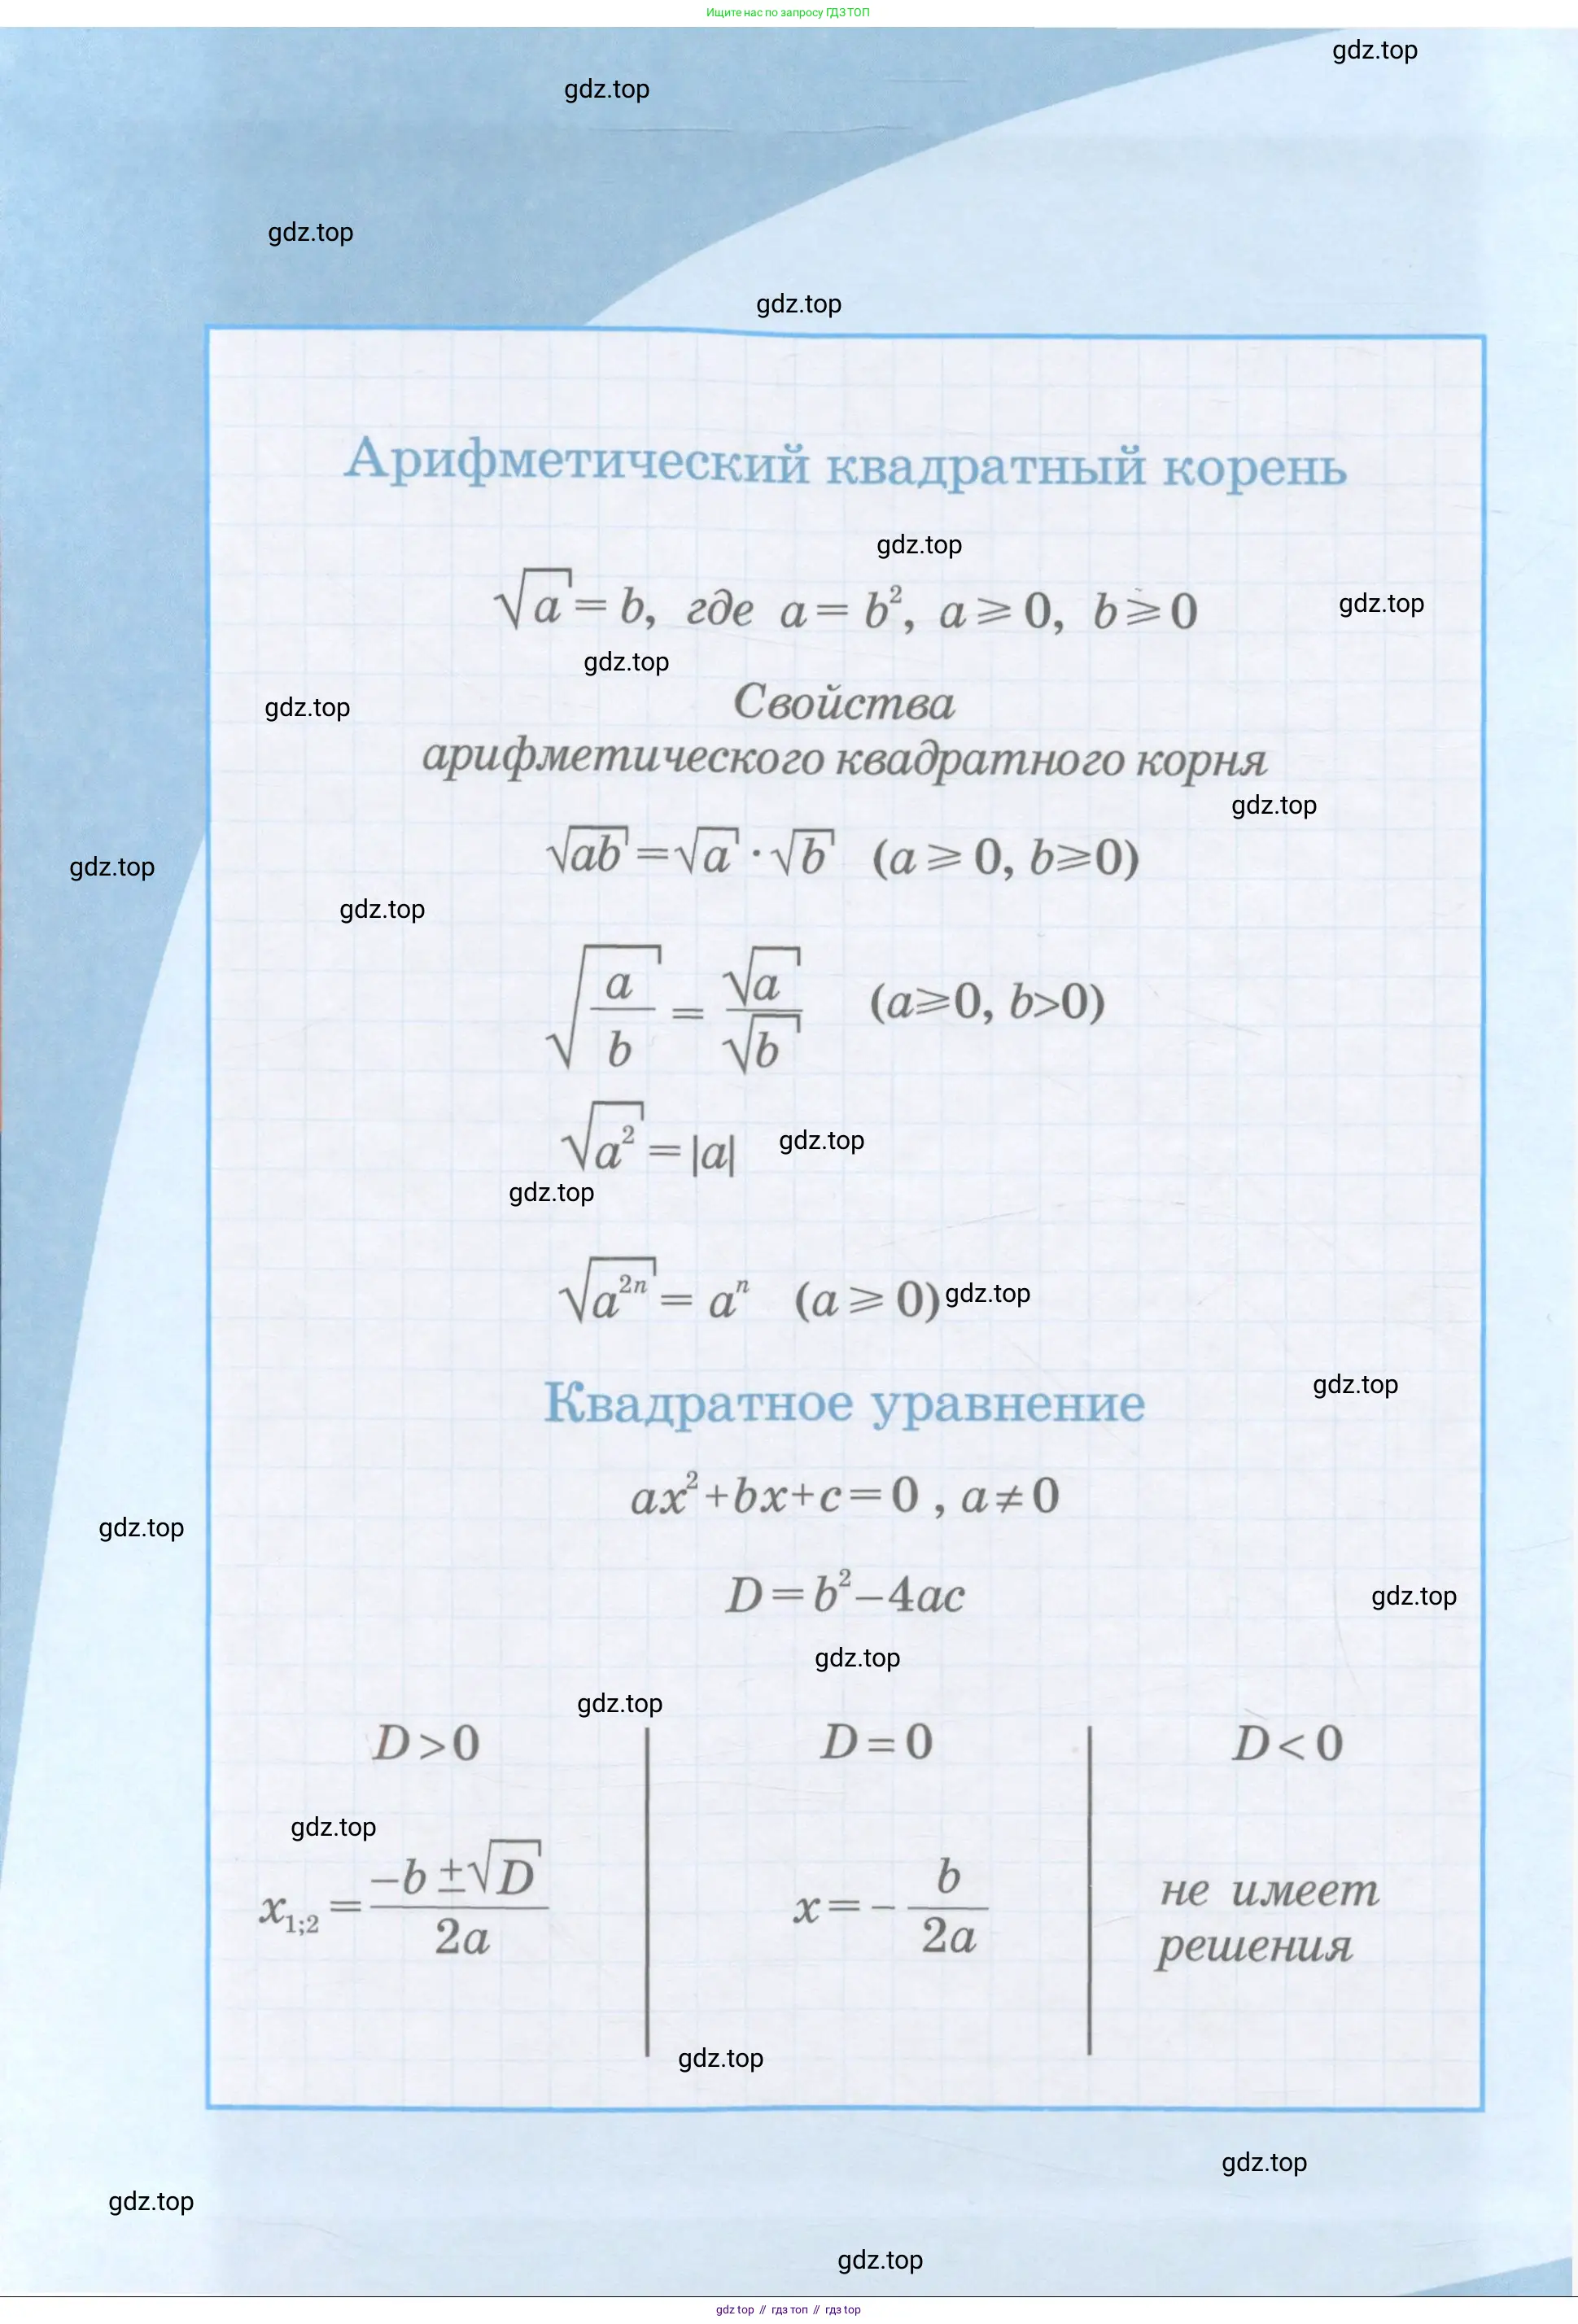 Ищите нас по запросу ГДЗ ТОП
gdz.top
gdz.top
gdz.top
gdz.top
Арифметический квадратный корень
gdz.top
√a = b, где a = b², a ⩾ 0, b ⩾ 0
gdz.top
gdz.top
Свойства
gdz.top
арифметического квадратного корня
gdz.top
√ab = √a · √b (a ⩾ 0, b ⩾ 0)
gdz.top
gdz.top
√(a/b) = √a/√b (a ⩾ 0, b > 0)
√a² = |a|
gdz.top
gdz.top
√a²ⁿ = aⁿ (a ⩾ 0)
gdz.top
gdz.top
Квадратное уравнение
ax² + bx + c = 0 , a ≠ 0
gdz.top
D = b² – 4ac
gdz.top
gdz.top
gdz.top
D > 0 D = 0 D < 0
gdz.top
x₁;₂ = (–b ± √D)/2a x = – b/2a не имеет
решения
gdz.top
gdz.top
gdz.top
gdz.top
gdz top // гдз топ // гдз top